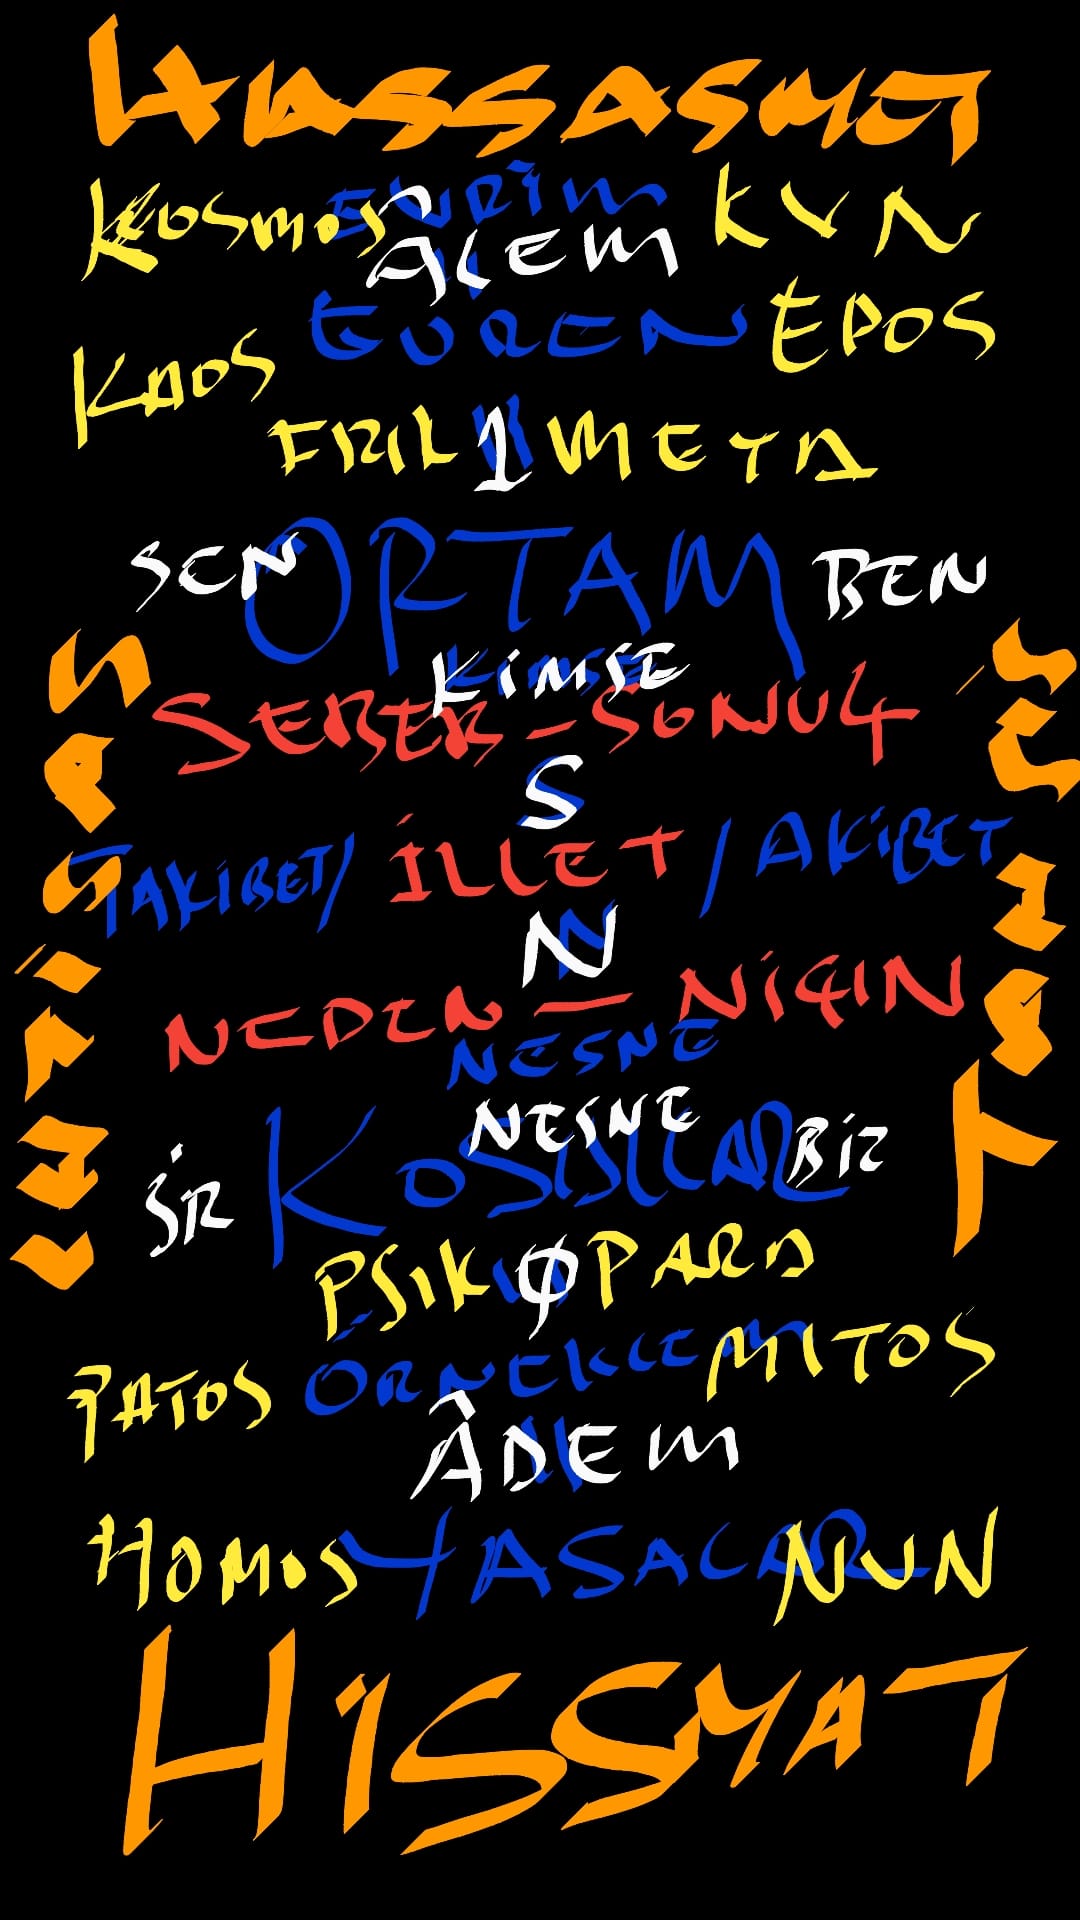 HASSASİYET
KOSMOS EVRİM KVN
ÂLEM
EVREN EPOS
KAOS
ERIL 1 META
SEN ORTAM BEN
KİMSE
SEBEB - SONUÇ
S
TAKİBET / İLLET / AKİBET
N
NEDEN - NİÇİN
NESNE
NESNE
SIR KOSULLAR BİZ
PSIK 0 PARA
PATOS ÖRNEKLEM MITOS
ÂDEM
HOMOS YASALAR NUN
HISSYAT